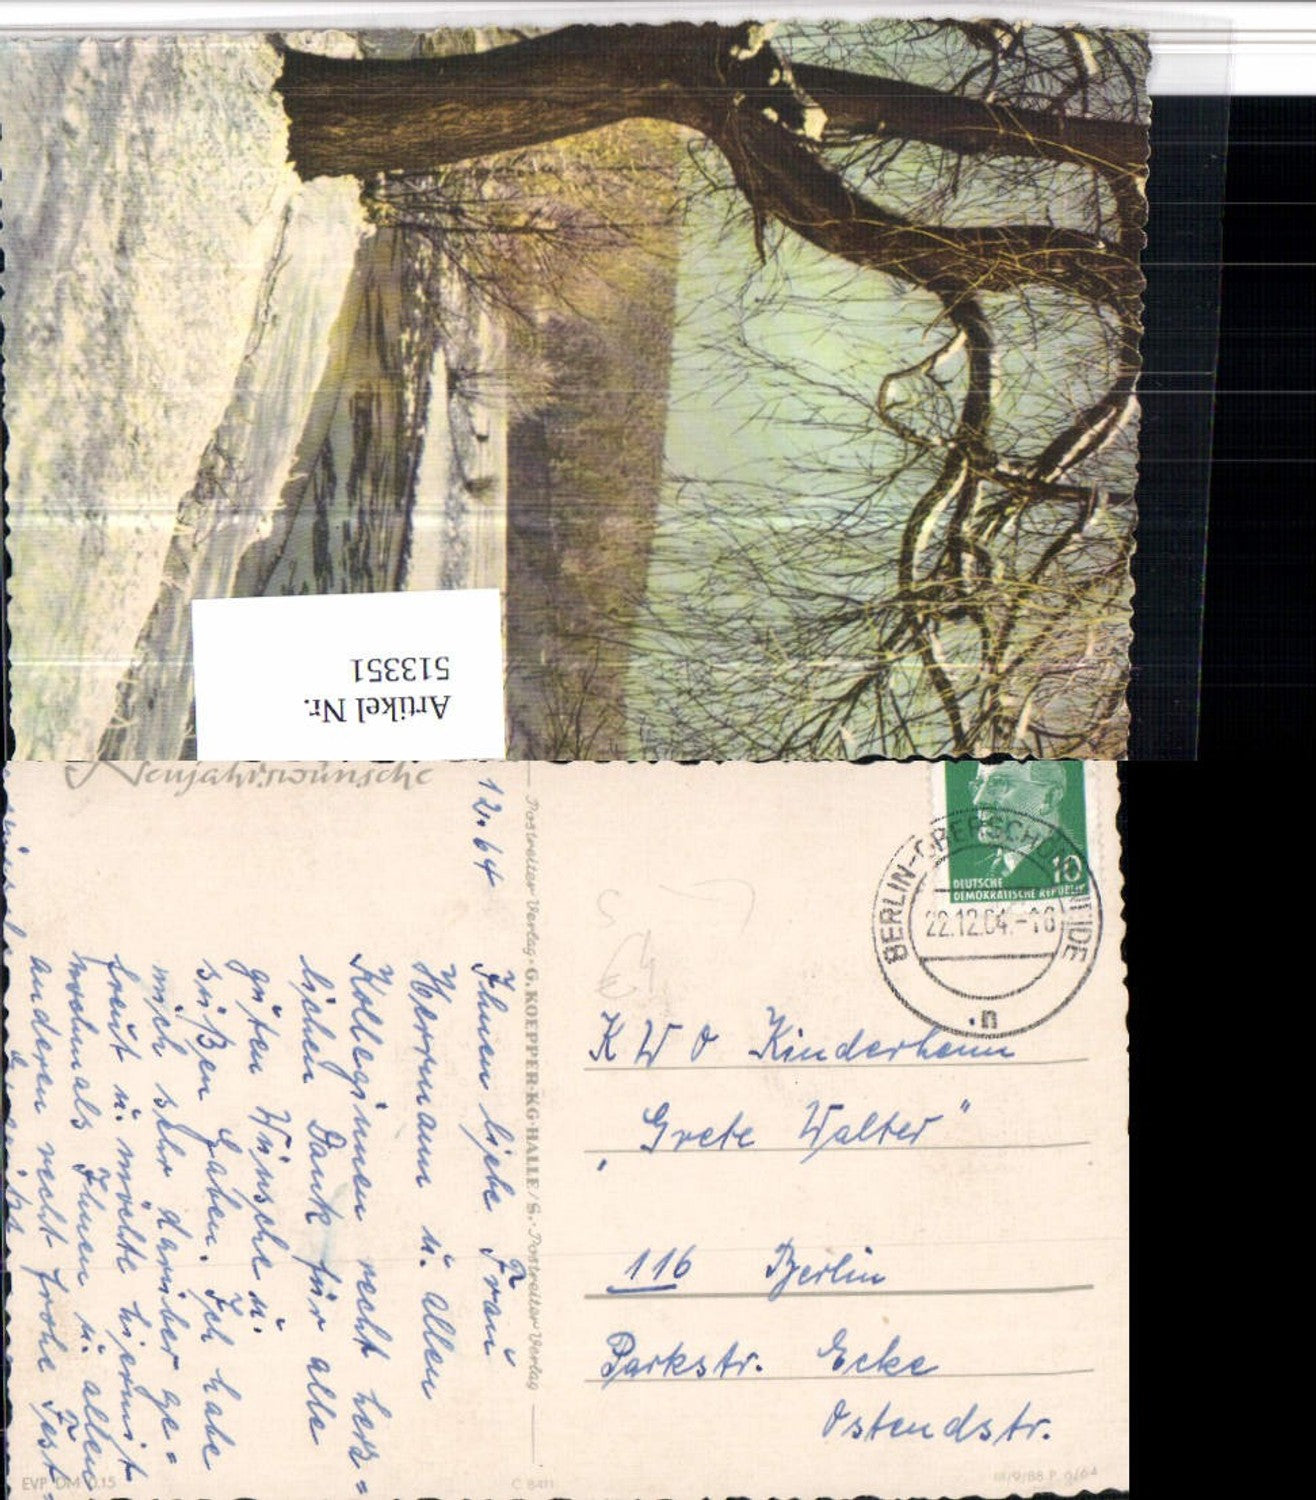 Artikel Nr.
513351
Neujahrswünsche
12.64
Ihnen liebe Frau
Herrmann u. allen
Kolleginnen recht herz=
lichen Dank für alle
guten Wünsche u.
süßen Gaben. Ich habe
mich sehr darüber ge=
freut u. möchte hiermit
nochmals Ihnen u. allen
anderen recht frohe Fest=
Postreiter Verlag · G. KOEPPER-KG·HALLE/S. · Postreiter Verlag
DEUTSCHE
DEMOKRATISCHE REPUBLIK
10
BERLIN-OBERSCHÖNEWEIDE
22.12.64.-16
n
KWO Kinderheim
"Grete Walter"
116 Berlin
Parkstr. Ecke
Ostendstr.
EVP DM 0,15
C 8411
III/9/88 P 9/64